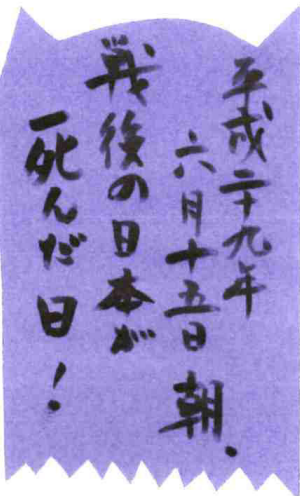 平成二十九年
六月十五日朝、
戦後の日本が
死んだ日!